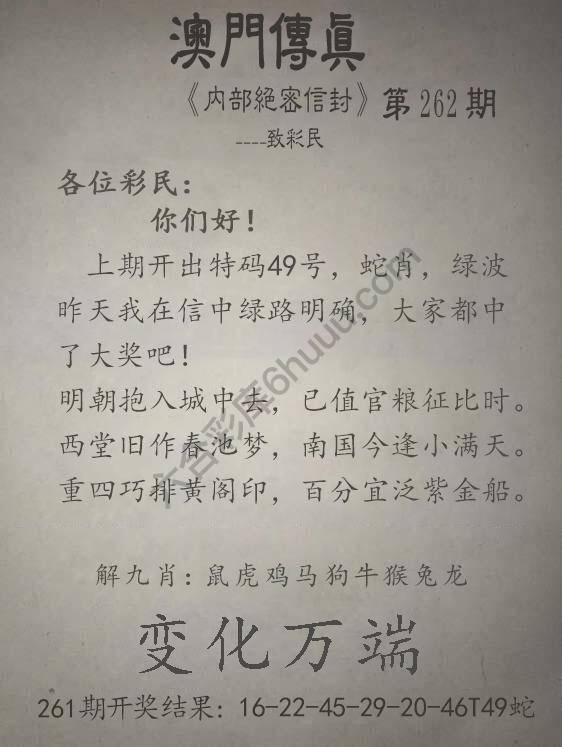 澳門傳眞
《内部絕密信封》第262期
----致彩民
各位彩民：
你们好！
上期开出特码49号，蛇肖，绿波
昨天我在信中绿路明确，大家都中
了大奖吧！
明朝抱入城中去，已值官粮征比时。
西堂旧作春池梦，南国今逢小满天。
重四巧排黄阁印，百分宜泛紫金船。
解九肖：鼠虎鸡马狗牛猴兔龙
变化万端
261期开奖结果：16-22-45-29-20-46T49蛇
六合彩库6huuu.com